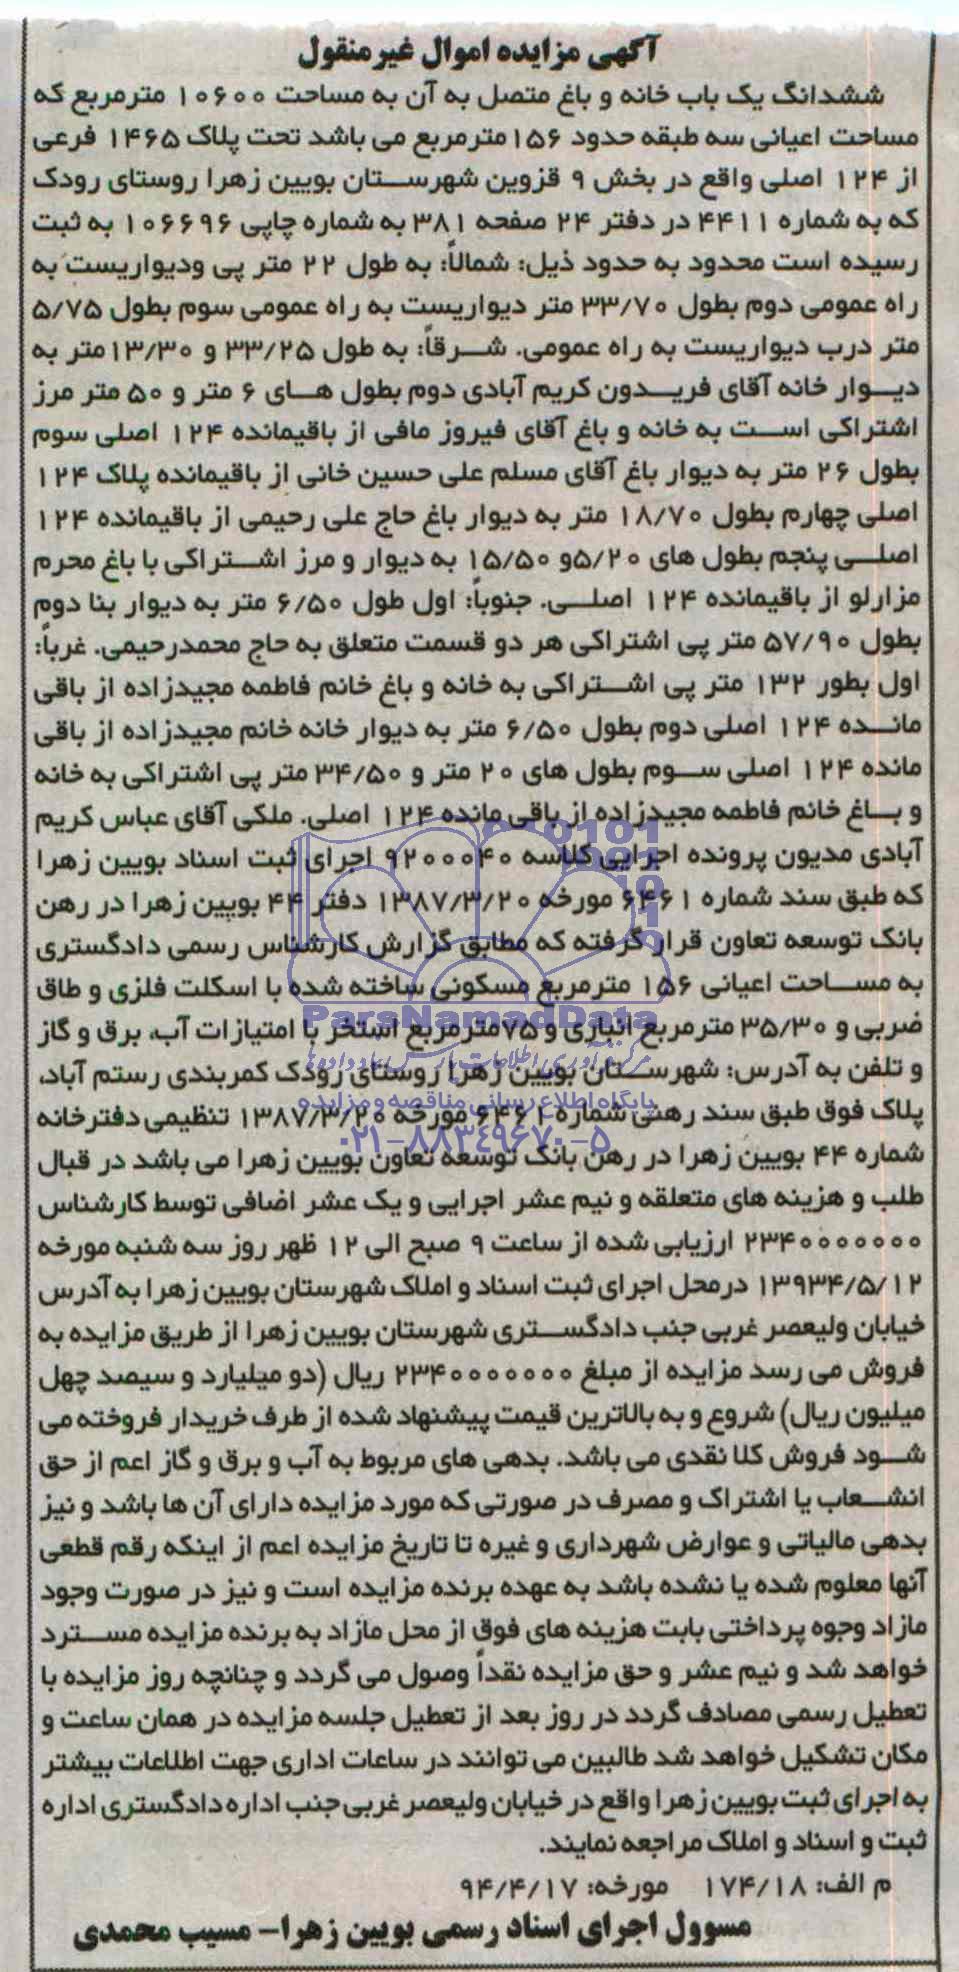 آگهی مزایده اموال غیرمنقول
ششدانگ یک باب خانه و باغ متصل به آن به مساحت ۱۰۶۰۰ مترمربع که
مساحت اعیانی سه طبقه حدود ۱۵۶مترمربع می باشد تحت پلاک ۱۴۶۵ فرعی
از ۱۲۴ اصلی واقع در بخش ۹ قزوین شهرستان بویین زهرا روستای رودک
که به شماره ۴۴۱۱ در دفتر ۲۴ صفحه ۳۸۱ به شماره چاپی ۱۰۶۶۹۶ به ثبت
رسیده است محدود به حدود ذیل: شمالاً: به طول ۲۲ متر پی ودیواریست به
راه عمومی دوم بطول ۳۳/۷۰ متر دیواریست به راه عمومی سوم بطول ۵/۷۵
متر درب دیواریست به راه عمومی. شرقاً: به طول ۳۳/۲۵ و ۱۳/۳۰متر به
دیوار خانه آقای فریدون کریم آبادی دوم بطول های ۶ متر و ۵۰ متر مرز
اشتراکی است به خانه و باغ آقای فیروز مافی از باقیمانده ۱۲۴ اصلی سوم
بطول ۲۶ متر به دیوار باغ آقای مسلم علی حسین خانی از باقیمانده پلاک ۱۲۴
اصلی چهارم بطول ۱۸/۷۰ متر به دیوار باغ حاج علی رحیمی از باقیمانده ۱۲۴
اصلی پنجم بطول های ۵/۲۰و ۱۵/۵۰ به دیوار و مرز اشتراکی با باغ محرم
مزارلو از باقیمانده ۱۲۴ اصلی. جنوباً: اول طول ۶/۵۰ متر به دیوار بنا دوم
بطول ۵۷/۹۰ متر پی اشتراکی هر دو قسمت متعلق به حاج محمدرحیمی. غرباً:
اول بطور ۱۳۲ متر پی اشتراکی به خانه و باغ خانم فاطمه مجیدزاده از باقی
مانده ۱۲۴ اصلی دوم بطول ۶/۵۰ متر به دیوار خانه خانم مجیدزاده از باقی
مانده ۱۲۴ اصلی سوم بطول های ۲۰ متر و ۳۴/۵۰ متر پی اشتراکی به خانه
و باغ خانم فاطمه مجیدزاده از باقی مانده ۱۲۴ اصلی. ملکی آقای عباس کریم
آبادی مدیون پرونده اجرایی کلاسه ۹۲۰۰۰۴۰ اجرای ثبت اسناد بویین زهرا
که طبق سند شماره ۶۴۶۱ مورخه ۱۳۸۷/۳/۲۰ دفتر ۴۴ بویین زهرا در رهن
بانک توسعه تعاون قرار گرفته که مطابق گزارش کارشناس رسمی دادگستری
به مساحت اعیانی ۱۵۶ مترمربع مسکونی ساخته شده با اسکلت فلزی و طاق
ParsNamadData
ضربی و ۳۵/۳۰ مترمربع انباری و ۷۵مترمربع استخر با امتیازات آب، برق و گاز
مرکز فرآوری اطلاعات پارس نماد داده‌ها
و تلفن به آدرس: شهرستان بویین زهرا روستای رودک کمربندی رستم آباد،
پایگاه اطلاع رسانی مناقصه و مزایده
پلاک فوق طبق سند رهنی شماره ۶۴۶۱ مورخه ۱۳۸۷/۳/۲۰ تنظیمی دفترخانه
۰۲۱-۸۸۳۴۹۶۷۰-۵
شماره ۴۴ بویین زهرا در رهن بانک توسعه تعاون بویین زهرا می باشد در قبال
طلب و هزینه های متعلقه و نیم عشر اجرایی و یک عشر اضافی توسط کارشناس
۲۳۴۰۰۰۰۰۰۰ ارزیابی شده از ساعت ۹ صبح الی ۱۲ ظهر روز سه شنبه مورخه
۱۳۹۳۴/۵/۱۲ درمحل اجرای ثبت اسناد و املاک شهرستان بویین زهرا به آدرس
خیابان ولیعصر غربی جنب دادگستری شهرستان بویین زهرا از طریق مزایده به
فروش می رسد مزایده از مبلغ ۲۳۴۰۰۰۰۰۰۰ ریال (دو میلیارد و سیصد چهل
میلیون ریال) شروع و به بالاترین قیمت پیشنهاد شده از طرف خریدار فروخته می
شود فروش کلا نقدی می باشد. بدهی های مربوط به آب و برق و گاز اعم از حق
انشعاب یا اشتراک و مصرف در صورتی که مورد مزایده دارای آن ها باشد و نیز
بدهی مالیاتی و عوارض شهرداری و غیره تا تاریخ مزایده اعم از اینکه رقم قطعی
آنها معلوم شده یا نشده باشد به عهده برنده مزایده است و نیز در صورت وجود
مازاد وجوه پرداختی بابت هزینه های فوق از محل مازاد به برنده مزایده مسترد
خواهد شد و نیم عشر و حق مزایده نقداً وصول می گردد و چنانچه روز مزایده با
تعطیل رسمی مصادف گردد در روز بعد از تعطیل جلسه مزایده در همان ساعت و
مکان تشکیل خواهد شد طالبین می توانند در ساعات اداری جهت اطلاعات بیشتر
به اجرای ثبت بویین زهرا واقع در خیابان ولیعصر غربی جنب اداره دادگستری اداره
ثبت و اسناد و املاک مراجعه نمایند.
م الف: ۱۷۴/۱۸ مورخه: ۹۴/۴/۱۷
مسوول اجرای اسناد رسمی بویین زهرا- مسیب محمدی